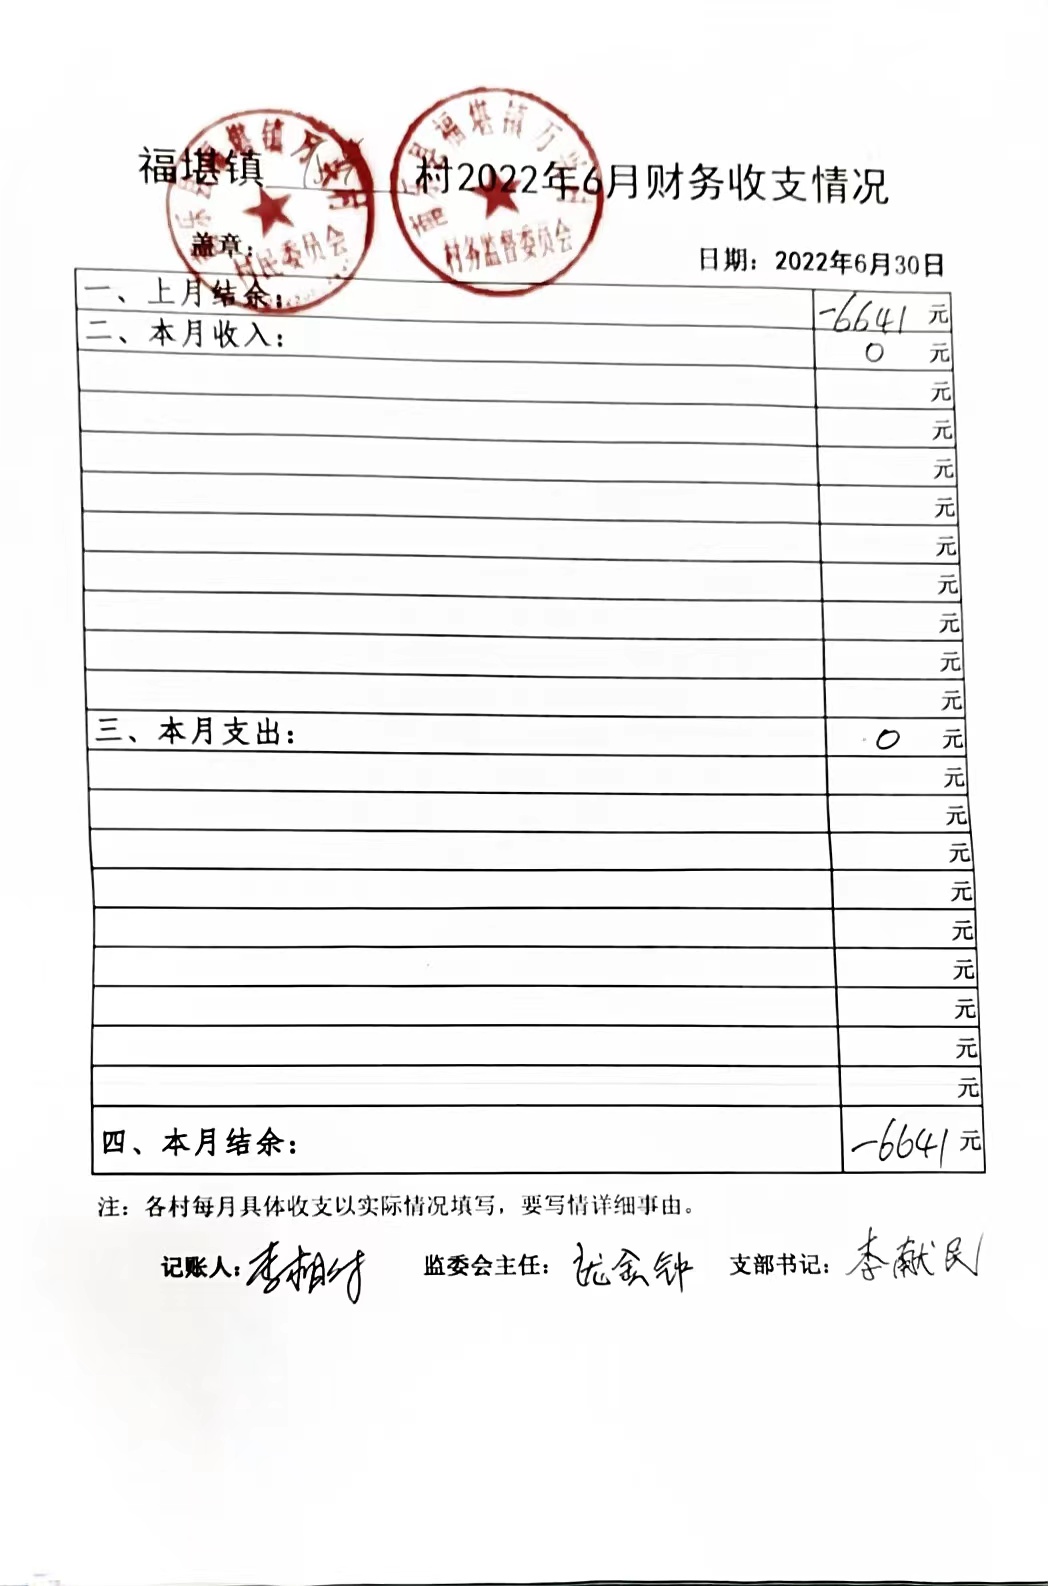 福堪镇 村2022年6月财务收支情况
福堪镇万
村民委员会
福堪镇万
村务监督委员会
盖章:
日期：2022年6月30日
一、上月结余: -6641 元
二、本月收入: 0 元
元
元
元
元
元
元
元
元
元
三、本月支出: 0 元
元
元
元
元
元
元
元
元
元
四、本月结余: -6641 元
注：各村每月具体收支以实际情况填写，要写情详细事由。
记账人:李相付 监委会主任: 金钟 支部书记:李献民